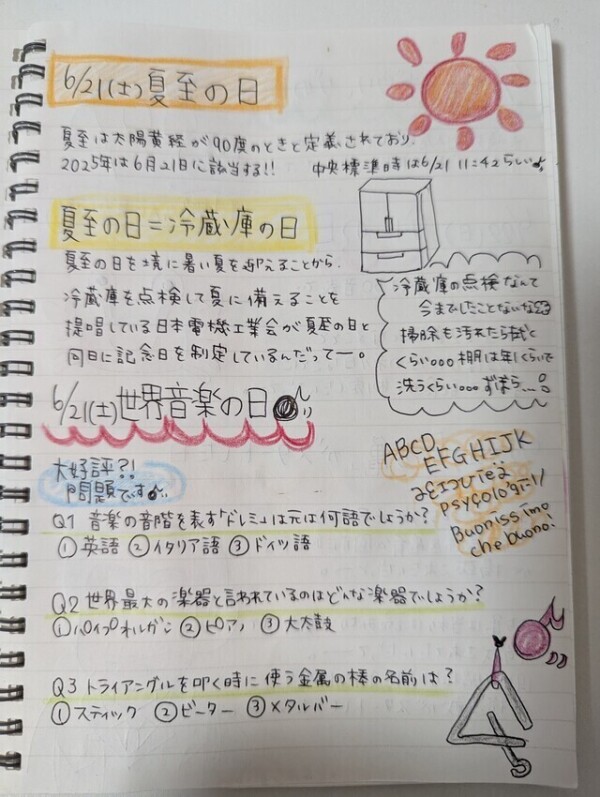 6/21(土)夏至の日
夏至は太陽黄経が90度のときと定義されており、
2025年は6月21日に該当する!! 中央標準時は6/21 11:42らしい♪
夏至の日=冷蔵庫の日
夏至の日を境に暑い夏を迎えることから、
冷蔵庫を点検して夏に備えることを
提唱している日本電機工業会が夏至の日と
同日に記念日を制定しているんだってー。
冷蔵庫の点検なんて
今までしたことないな
掃除も汚れたら拭く
くらい。。。棚は年1くらいで
洗うくらい。。。ずぼら...
6/21(土)世界音楽の日
大好評?!
問題です♪
ABCD
EFGHIJK
psycologi
Buonissimo
che buono!
Q1 音楽の音階を表す「ドレミ」は元は何語でしょうか?
①英語 ②イタリア語 ③ドイツ語
Q2 世界最大の楽器と言われているのはどんな楽器でしょうか?
①パイプオルガン ②ピアノ ③大太鼓
Q3 トライアングルを叩く時に使う金属の棒の名前は?
①スティック ②ビーター ③メタルバー